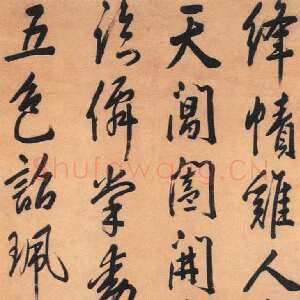 絳幘雞人
天閶闔開
臨僊掌動
五色詔珮
Shufawang.CN